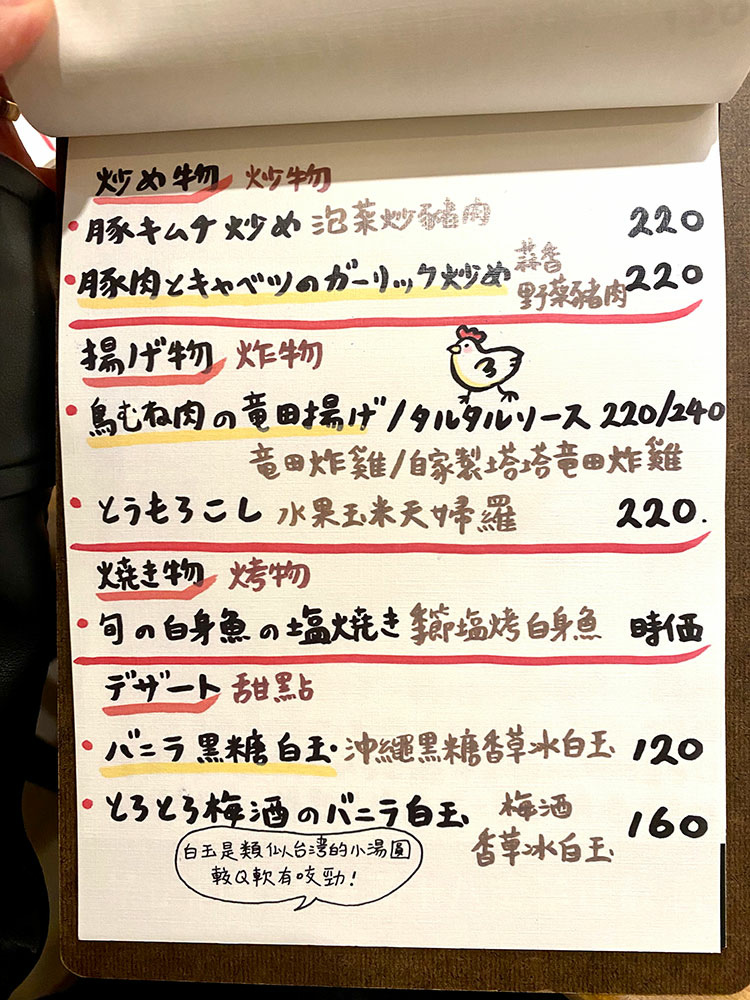 炒め物 炒物
豚キムチ炒め 泡菜炒豬肉 220
豚肉とキャベツのガーリック炒め 蒜香 220
野菜豬肉
揚げ物 炸物
鳥むね肉の竜田揚げ/タルタルソース 220/240
竜田炸雞/自家製塔塔竜田炸雞
とうもろこし 水果玉米天婦羅 220.
焼き物 烤物
旬の白身魚の塩焼き 季節塩烤白身魚 時価
デザート 甜點
バニラ黒糖白玉 沖縄黒糖香草冰白玉 120
とろとろ梅酒のバニラ白玉 梅酒 160
香草冰白玉
白玉是類似台湾的小湯圓
較Q軟有咬勁!